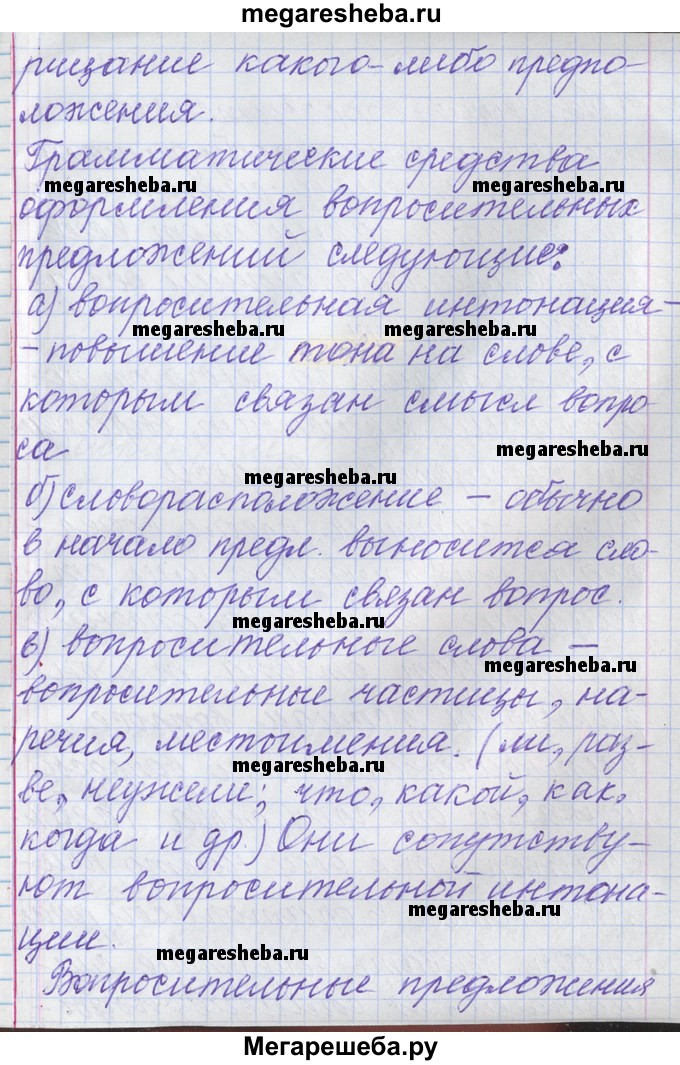 megaresheba.ru
рицание какого-либо предпо-
ложения.
Грамматические средства
megaresheba.ru megaresheba.ru
оформления вопросительных
предложений следующие:
а) вопросительная интонация-
megaresheba.ru megaresheba.ru
-повышение тона на слове, с
которым связан смысл вопро-
са
megaresheba.ru
megaresheba.ru
б) словорасположение – обычно
в начало предл. выносится сло-
во, с которым связан вопрос.
megaresheba.ru
в) вопросительные слова –
megaresheba.ru
вопросительные частицы, на-
megaresheba.ru
речия, местоимения. (ли, раз-
megaresheba.ru
ве, неужели; что, какой, как,
когда и др.) Они сопутству-
ют вопросительной интона-
megaresheba.ru
ции.
megaresheba.ru
Вопросительные предложения
Мегарешеба.ру